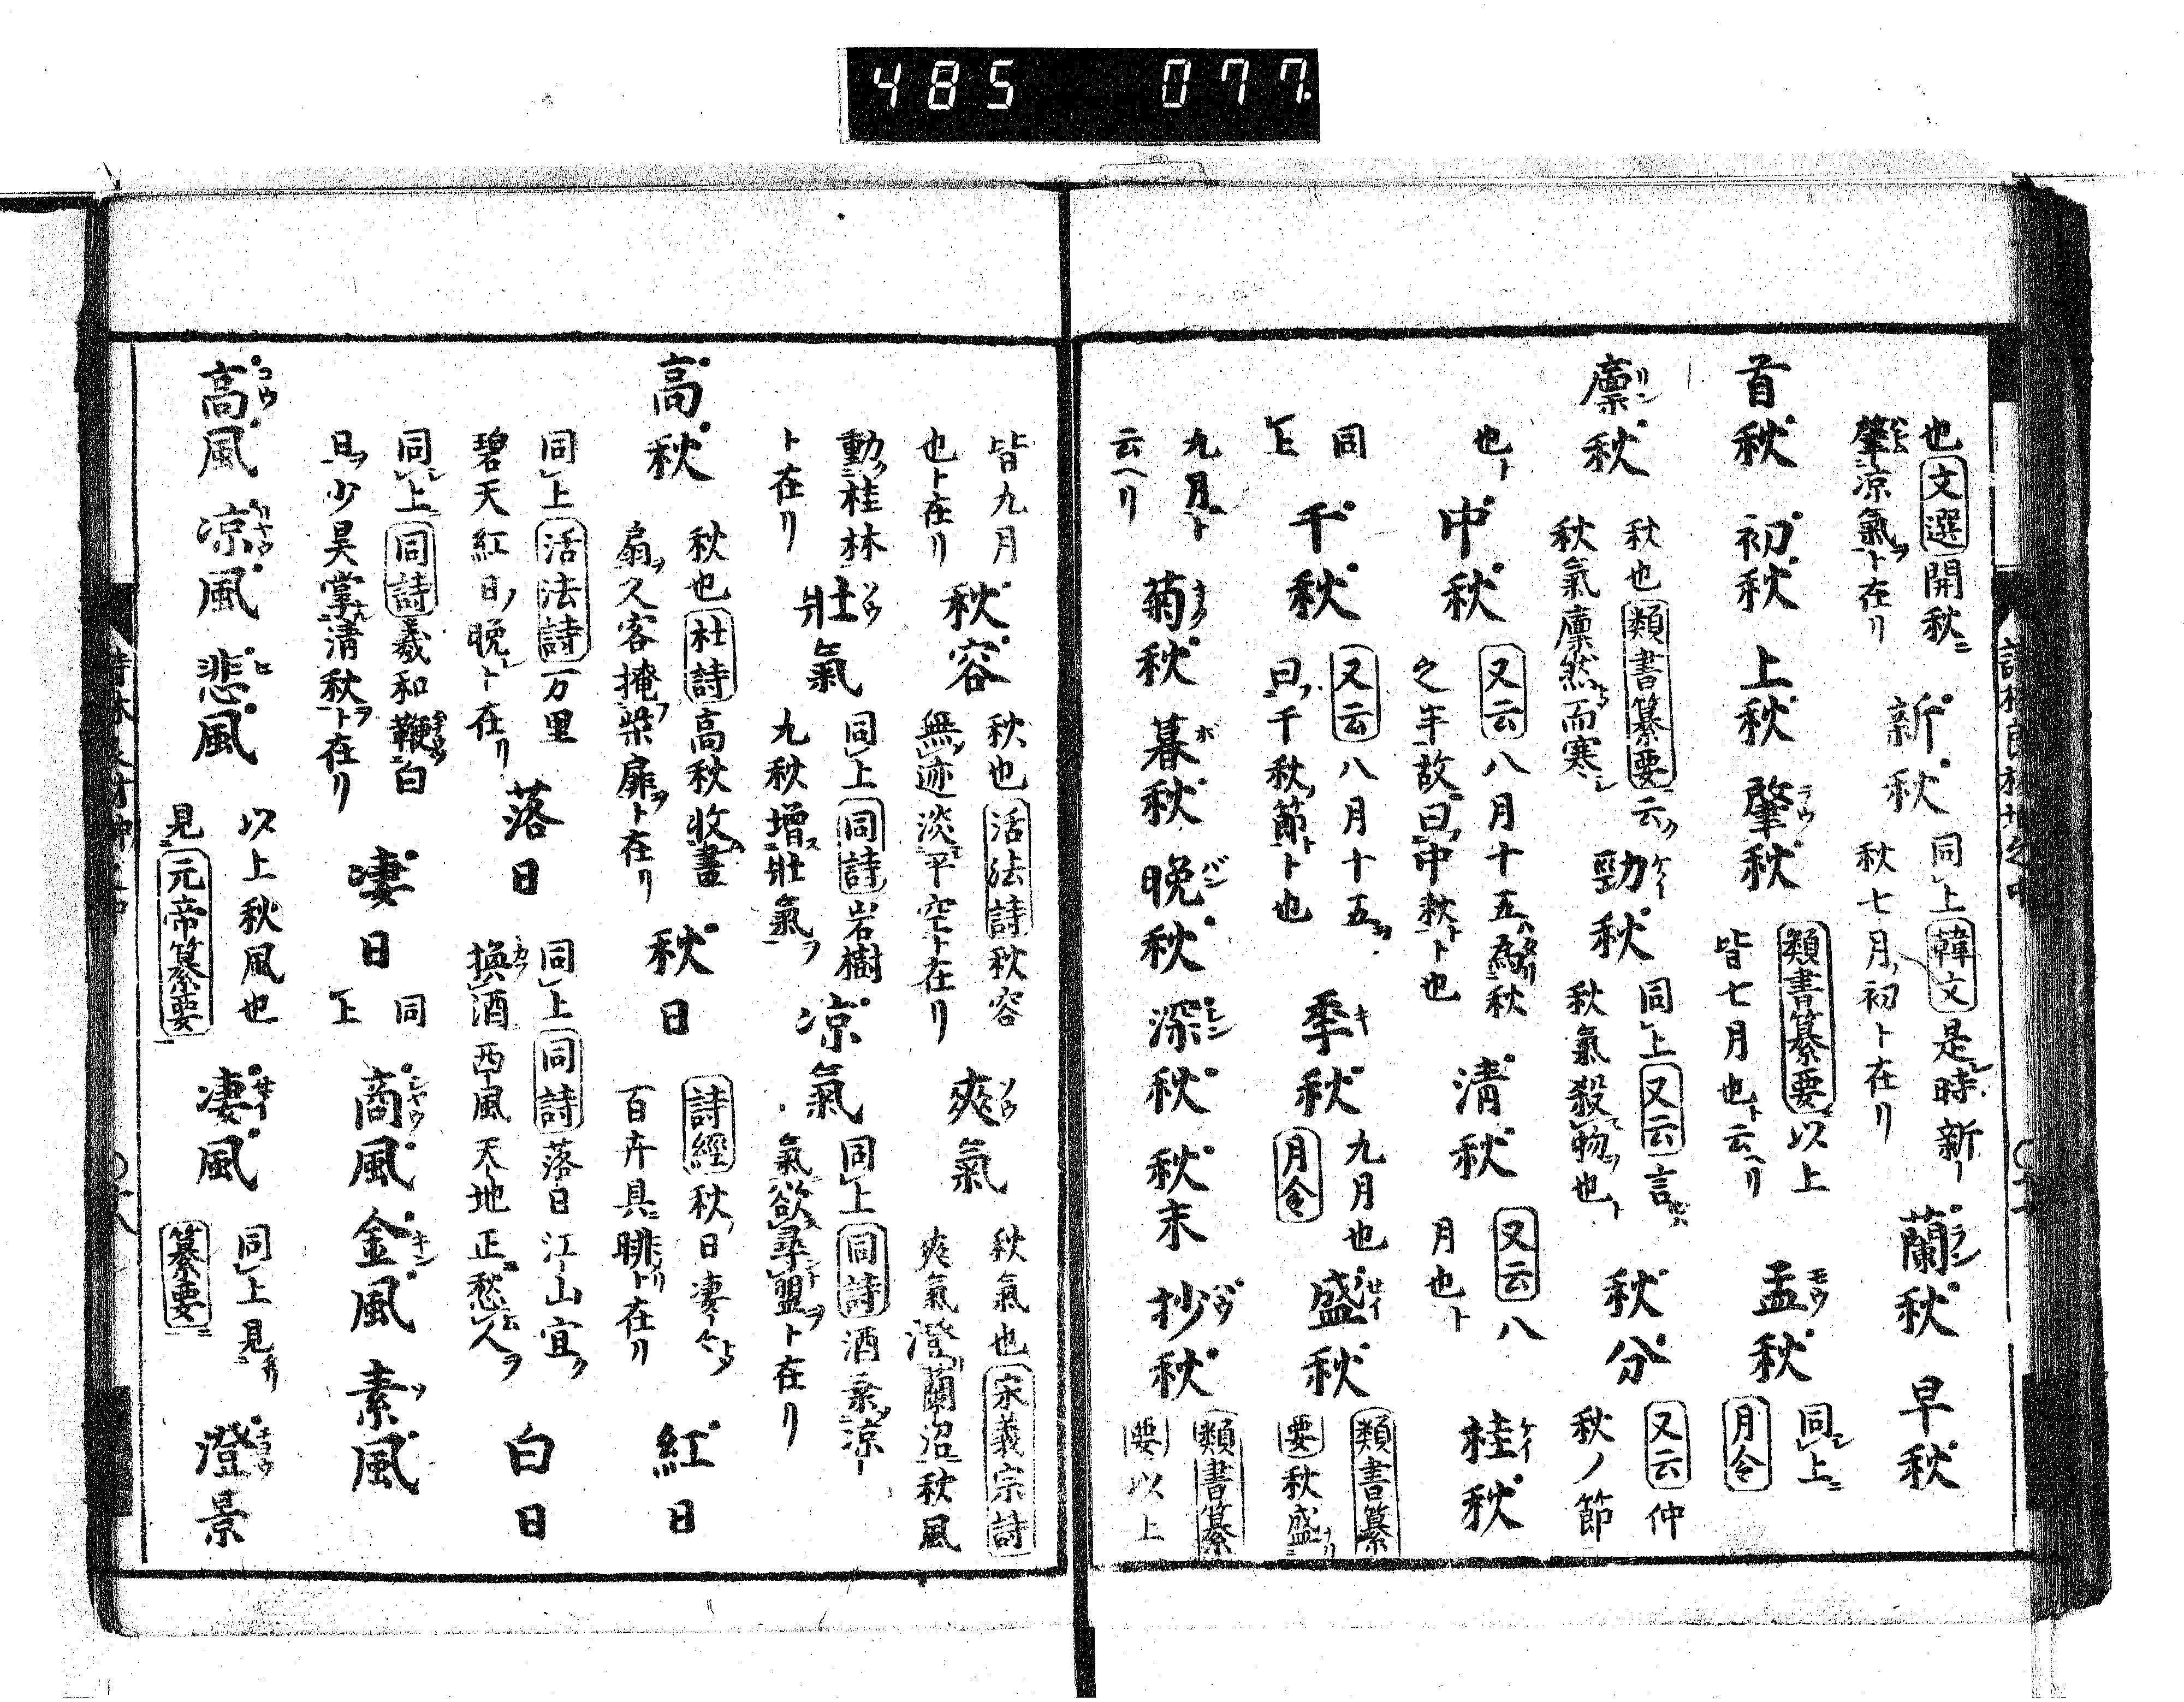 485 077.
也文選開秋ニ
肇凉氣ヲト在リ
新秋
同上韓文是時新
秋七月初ト在リ
蘭秋 早秋
首秋 初秋 上秋 肇秋
類書纂要以上
皆七月也ト云ヘリ
孟秋
同上
月令
廩秋
秋也類書纂要云
秋氣廩然而寒
勁秋
同上又云言
秋氣殺物也
秋分
又云仲
秋ノ節
也ト
中秋
又云八月十五為秋
之半故曰中秋ト也
清秋
又云八
月也ト
桂秋
同
上
千秋
又云八月十五
曰千秋節ト也
季秋
九月也
月令
盛秋
類書纂
要秋盛
九月ト
云ヘリ
菊秋 暮秋 晩秋 深秋 秋末 抄秋
類書纂
要以上
皆九月
也ト在リ
秋容
秋也活法詩秋容
無迹淡平空ト在リ
爽氣
秋氣也宋義宗詩
爽氣澄蘭沼秋風
動桂林
ト在リ
壯氣
同上同詩岩樹
九秋增壯氣ヲ
凉氣
同上同詩酒乗凉
氣欲尋盟ト在リ
高秋
秋也杜詩高秋收畫
扇久客掩柴扉ト在リ
秋日
詩經秋日凄々
百卉具腓ト在リ
紅日
同上活法詩万里
碧天紅日晩ト在リ
落日
同上同詩落日江山宜
換酒西風天地正愁人
白日
同上同詩羲和鞭白
日少昊掌清秋ト在リ
凄日
同
上
商風 金風 素風
高風 凉風 悲風
以上秋風也
見元帝纂要
凄風
同上見
纂要
澄景